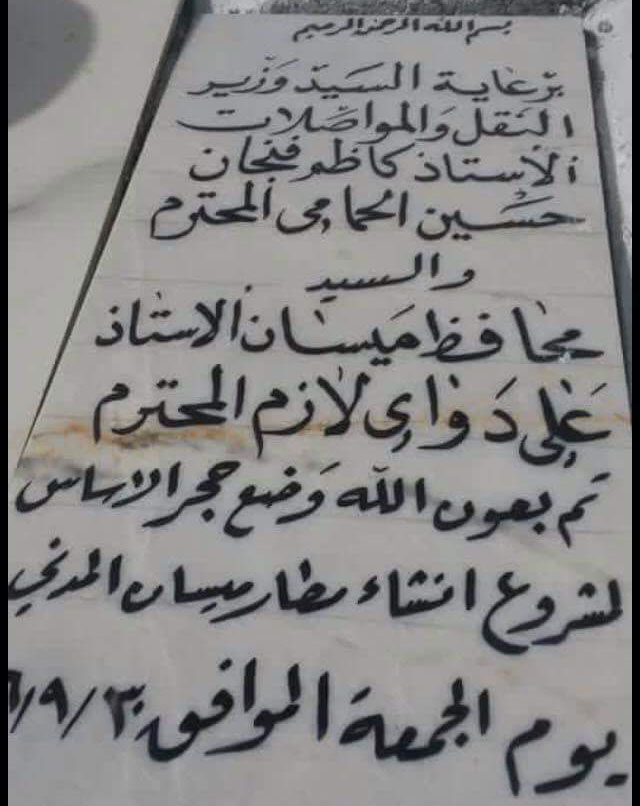 بسم الله الرحمن الرحيم
برعاية السيد وزير
النقل والمواصلات
الاستاذ كاظم فنجان
حسين الحمامي المحترم
والسيد
محافظ ميسان الاستاذ
علي دواي لازم المحترم
تم بعون الله وضع حجر الاساس
لمشروع انشاء مطار ميسان المدني
يوم الجمعة الموافق ٣٠/٩/٦